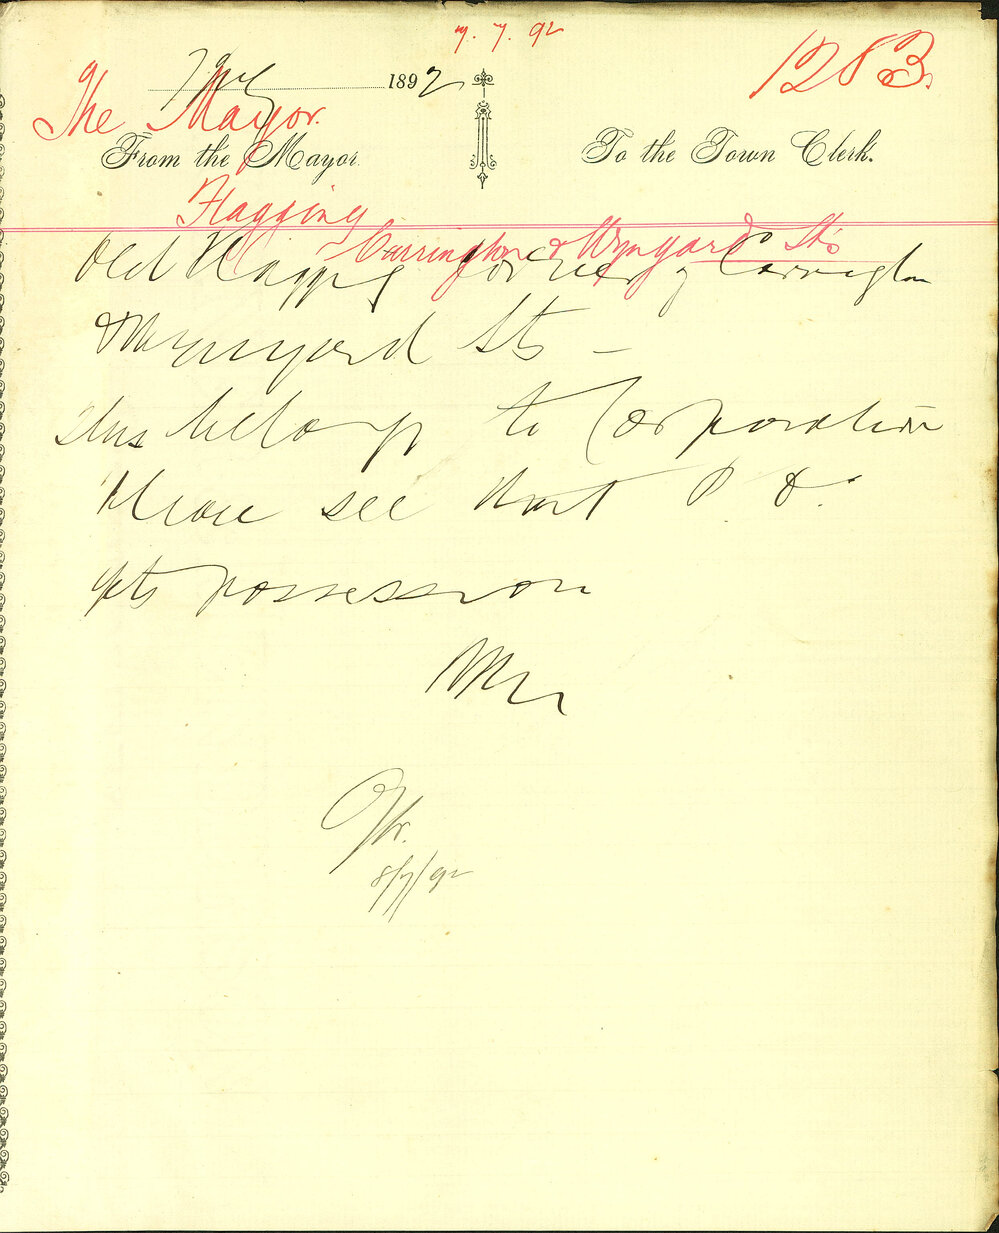 7. 7. 92
1283.
7 July 1892
The Mayor.
From the Mayor To the Town Clerk.
Flagging
Carrington & Wynyard Sts
Old Flagging corner of Carrington
& Wynyard Sts –
this belongs to Corporation
Please see that
gets possession
8/7/92